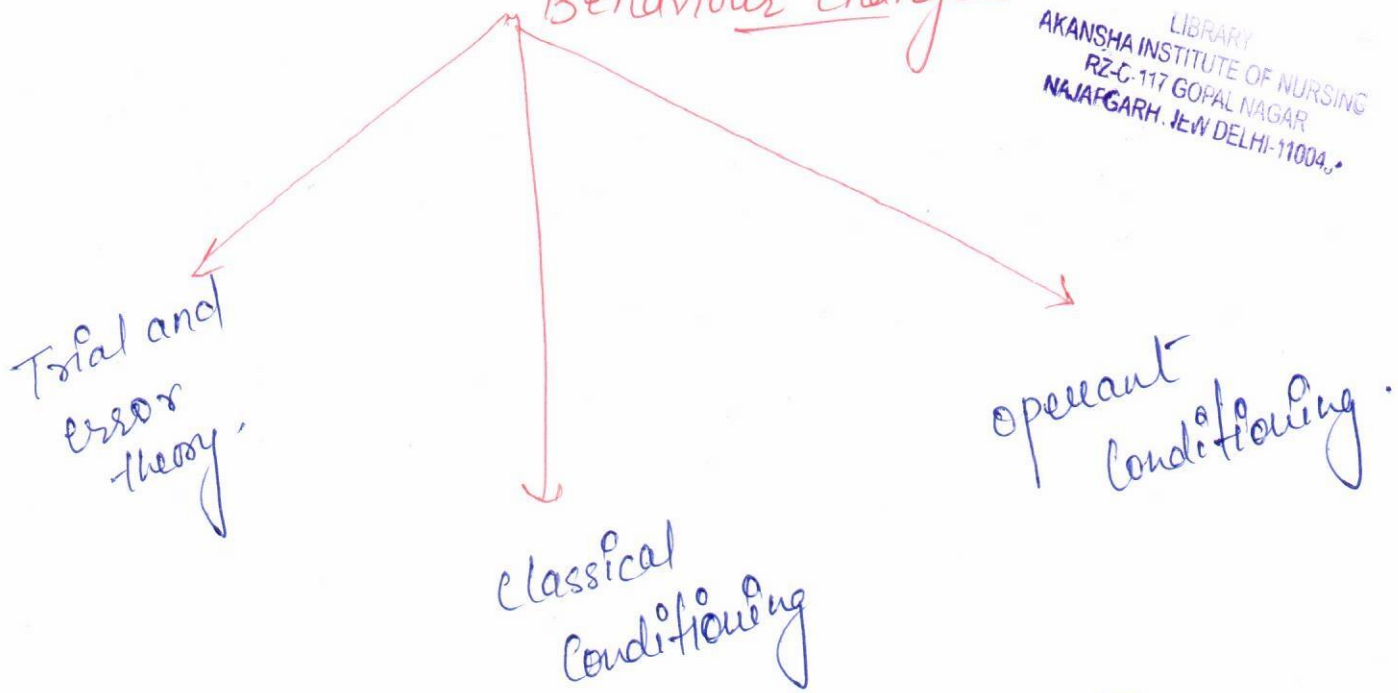 Behaviour Change
LIBRARY
AKANSHA INSTITUTE OF NURSING
RZ-C-117 GOPAL NAGAR
NAJAFGARH. NEW DELHI-11004
Trial and
error
theory.
classical
Conditioning
operant
Conditioning.